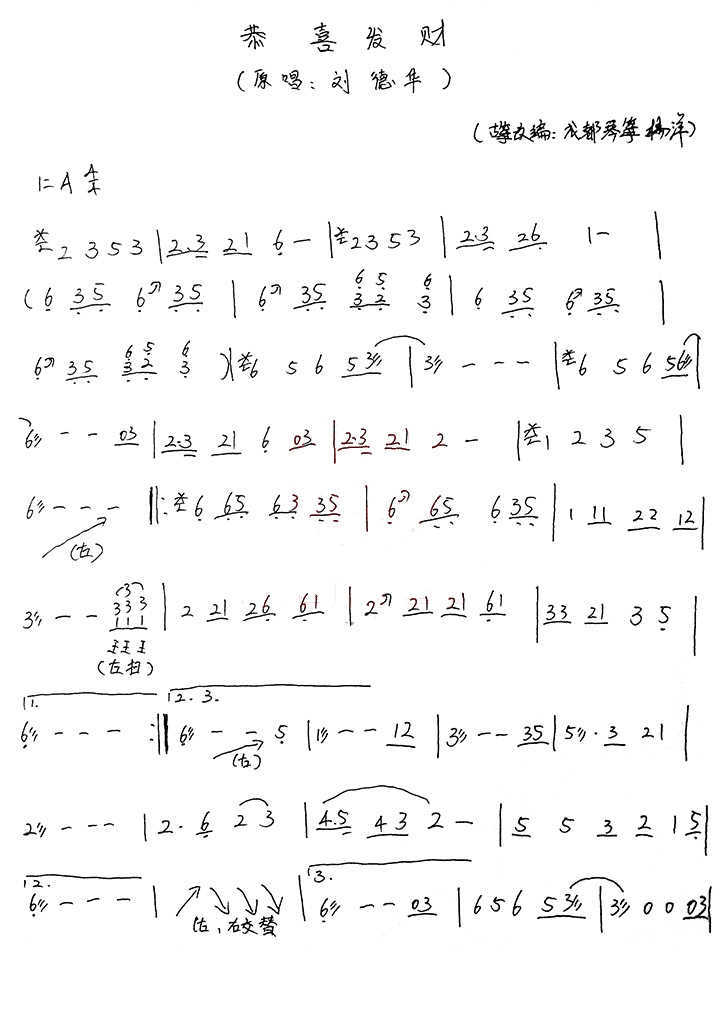 恭喜发财
(原唱：刘德华)
(古筝改编：成都琴筝杨洋)
1=A 4/4
2 3 5 3 | 2.3 21 6 — | 2 3 5 3 | 2.3 26 1 — |
(6 35 6 35 | 6 35 63 52 63 | 6 35 6 35 |
6 35 63 52 63 )| 6 5 6 53 | 3 — — — | 6 5 6 56 |
6 — — 03 | 2.3 21 6 03 | 2.3 21 2 — | 1 2 3 5 |
6 — — — ‖: 6 65 63 35 | 6 65 6 35 | 1 11 22 12 |
(左)
3 — — 333 111 | 2 21 26 61 | 2 21 21 61 | 33 21 3 5 |
3
(左扫)
1. 2. 3.
6 — — — :‖ 6 — — 5 | 1 — — 12 | 3 — — 35 | 5 . 3 21 |
(左)
2 — — — | 2. 6 2 3 | 4.5 43 2 — | 5 5 3 2 1 5 |
2. 3.
6 — — — | | 6 — — 03 | 6 5 6 53 | 3 0 0 03 |
左，右交替